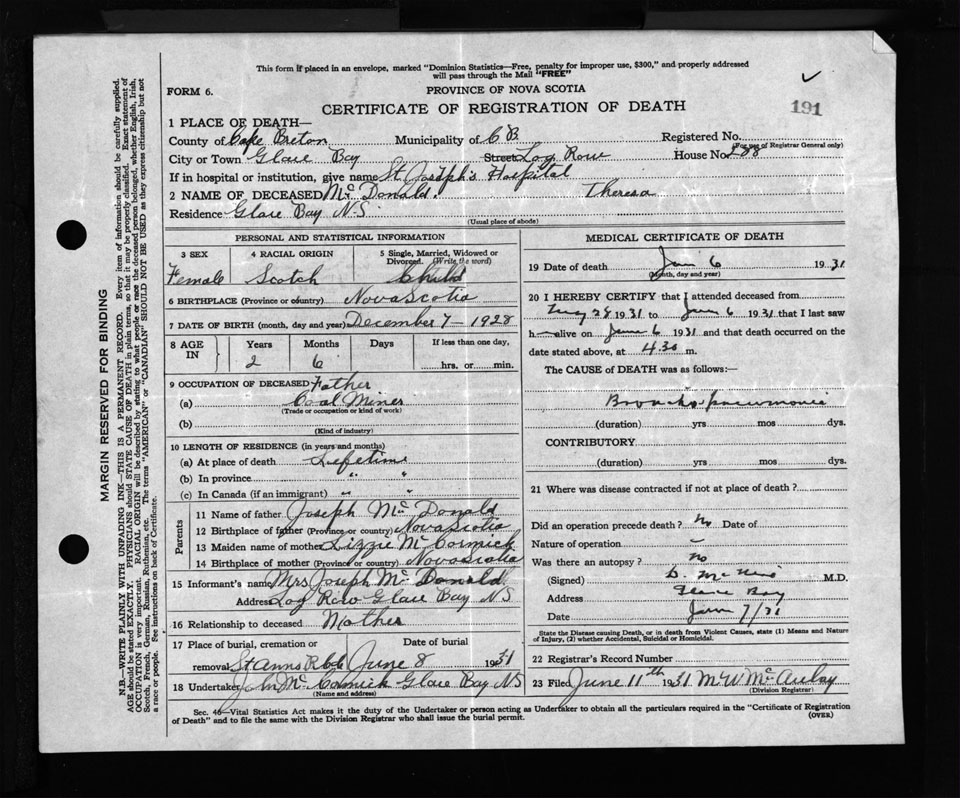 This form if placed in an envelope, marked "Dominion Statistics—Free, penalty for improper use, $300," and properly addressed
will pass through the Mail "FREE"
FORM 6.
PROVINCE OF NOVA SCOTIA
191
CERTIFICATE OF REGISTRATION OF DEATH
1 PLACE OF DEATH—
County of Cape Breton Municipality of C B Registered No.
(For use of Registrar General only)
City or Town Glace Bay Street Log Row House No 288
If in hospital or institution, give name St. Joseph's Hospital
2 NAME OF DECEASED Mc Donald. Theresa
Residence Glace Bay N.S.
(Usual place of abode)
PERSONAL AND STATISTICAL INFORMATION
3 SEX 4 RACIAL ORIGIN 5 Single, Married, Widowed or Divorced. (Write the word)
Female Scotch Child
6 BIRTHPLACE (Province or country) Nova Scotia
7 DATE OF BIRTH (month, day and year) December 7 - 1928
8 AGE IN Years Months Days If less than one day,
2 6 hrs. or min.
9 OCCUPATION OF DECEASED Father
(a) Coal Miner
(Trade or occupation or kind of work)
(b)
(Kind of industry)
10 LENGTH OF RESIDENCE (in years and months)
(a) At place of death Lifetime
(b) In province " "
(c) In Canada (if an immigrant) " "
Parents
11 Name of father Joseph Mc Donald
12 Birthplace of father (Province or country) Nova Scotia
13 Maiden name of mother Lizzie Mc Cormick
14 Birthplace of mother (Province or country) Nova Scotia
15 Informant's name Mrs Joseph Mc Donald
Address Log Row Glace Bay N S
16 Relationship to deceased Mother
17 Place of burial, cremation or Date of burial
removal St Anns June 8 1931
18 Undertaker John Mc Cormick Glace Bay N S
(Name and address)
MEDICAL CERTIFICATE OF DEATH
19 Date of death June 6 1931
(Month, day and year)
20 I HEREBY CERTIFY that I attended deceased from
28 1931 to June 6 1931 that I last saw
h alive on June 6 1931 and that death occurred on
date stated above, at 4.30 m.
The CAUSE of DEATH was as follows:—
Broncho pneumonia
(duration) yrs mos dys.
CONTRIBUTORY
(duration) yrs. mos. dys.
21 Where was disease contracted if not at place of death?
Did an operation precede death? No Date of
Nature of operation –
Was there an autopsy? No
(Signed) M.D.
Address Glace Bay
Date June 7/31
State the Disease causing Death, or in death from Violent Causes, state (1) Means and Nature
of Injury, (2) whether Accidental, Suicidal or Homicidal.
22 Registrar's Record Number
23 Filed June 11th 1931 M W McAulay
(Division Registrar)
Sec. 46—Vital Statistics Act makes it the duty of the Undertaker or person acting as Undertaker to obtain all the particulars required in the "Certificate of Registration
of Death" and to file the same with the Division Registrar who shall issue the burial permit.
(OVER)
MARGIN RESERVED FOR BINDING
N.B.—WRITE PLAINLY WITH UNFADING INK—THIS IS A PERMANENT RECORD. Every item of information should be carefully supplied.
AGE should be stated EXACTLY. PHYSICIANS should STATE CAUSE OF DEATH in plain terms, so that it may be properly classified. Exact statement of
OCCUPATION is very important. RACIAL ORIGIN will be described by stating to what people or race the deceased person belonged, whether English, Irish,
Scotch, French, German, Russian, Ruthenian, etc. The terms "AMERICAN" or "CANADIAN" SHOULD NOT BE USED as they express citizenship but not
a race or people. See instructions on back of Certificate.